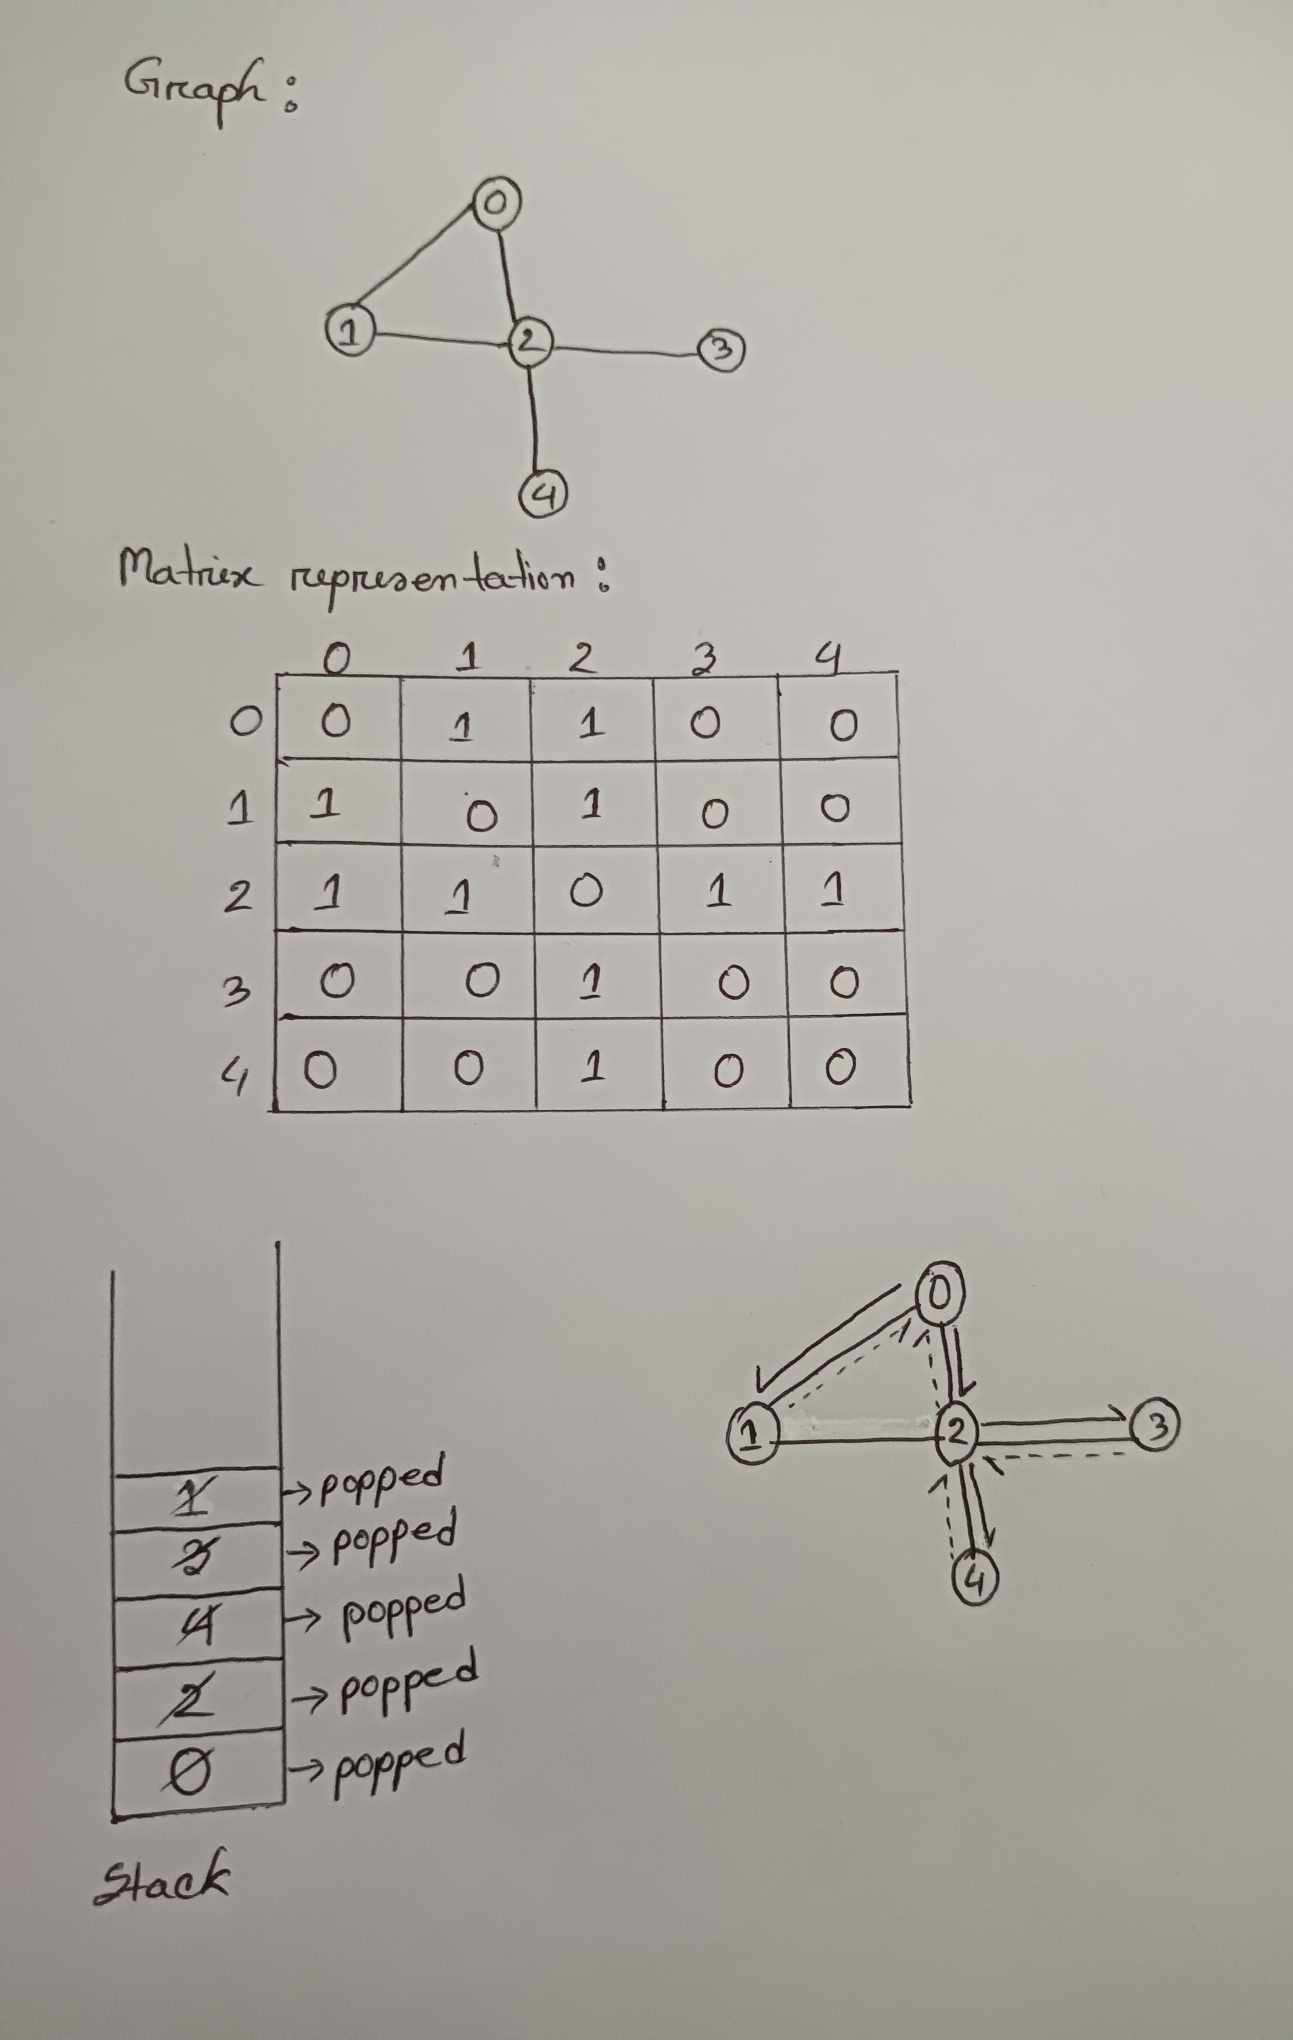 Graph:
0
1 2 3
4
Matrix representation:
0 1 2 3 4
0 0 1 1 0 0
1 1 0 1 0 0
2 1 1 0 1 1
3 0 0 1 0 0
4 0 0 1 0 0
1 → popped
3 → popped
4 → popped
2 → popped
0 → popped
Stack
0
1 2 3
4